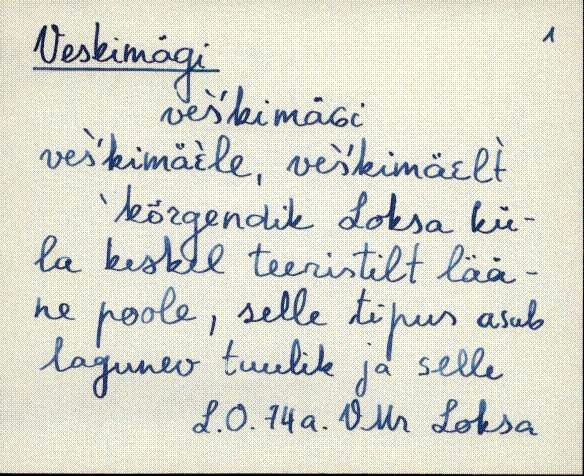 Veskimägi 1
veš̀'kimäɢi
veš̀'kimäɛ̀le, veš̀'kimäɛlt̀
`kõrgendik Loksa kü-
la keskel teeristilt lää-
ne poole, selle tipus asub
lagunev tuulik ja selle
L.O. 74a. VMr Loksa